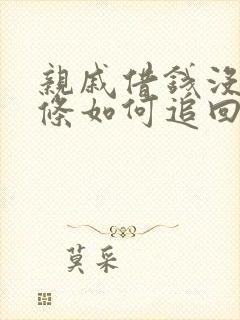 親戚借錢沒
條如何追回
莫采